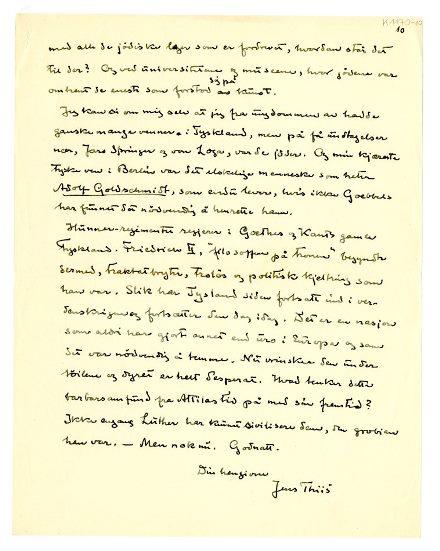 K 1170-10
10
med alle de jödiske leger som er fordrevet, hvordan står det
til der? Og ved universitetene og museene, hvor jödene var
omtrent de eneste som forstod sig på kunst.
Jeg kan si om mig selv at jeg fra ungdommen av hadde
ganske mange venner i Tyskland, men på få undtagelser
nær, Jaro Springer og von Loga, var de jöder. Og min kjæreste
tyske ven i Berlin var det elskelige menneske som heter
Adolf Goldschmidt, som endu lever, hvis ikke Goebbels
har funnet det nödvendig å henrette ham.
Hunner-regimentet regjerer i Goethes og Kants gamle
Tyskland. Friedrich II, "filosoffen på tronen" begyndte
dermed, traktatbryter, trolös og politisk kjeltring som
han var. Slik har Tyskland siden fortsatt ind i ver-
denskrigen og fortsetter den dag idag. Det er en nasjon
som aldri har gjort annet end urs i Europa og som
det var nödvendig å temme. Nu vrinsker den under
töilene og dyret er helt desperat. Hvad tenker dette
barbarsamfund fra Attilas tid på med sin fremtid?
Ikke engang Luther har kunnet sivilisere dem, den grobian
han var. — Men nok nu. Godnatt.
Din hengivne
Jens Thiis